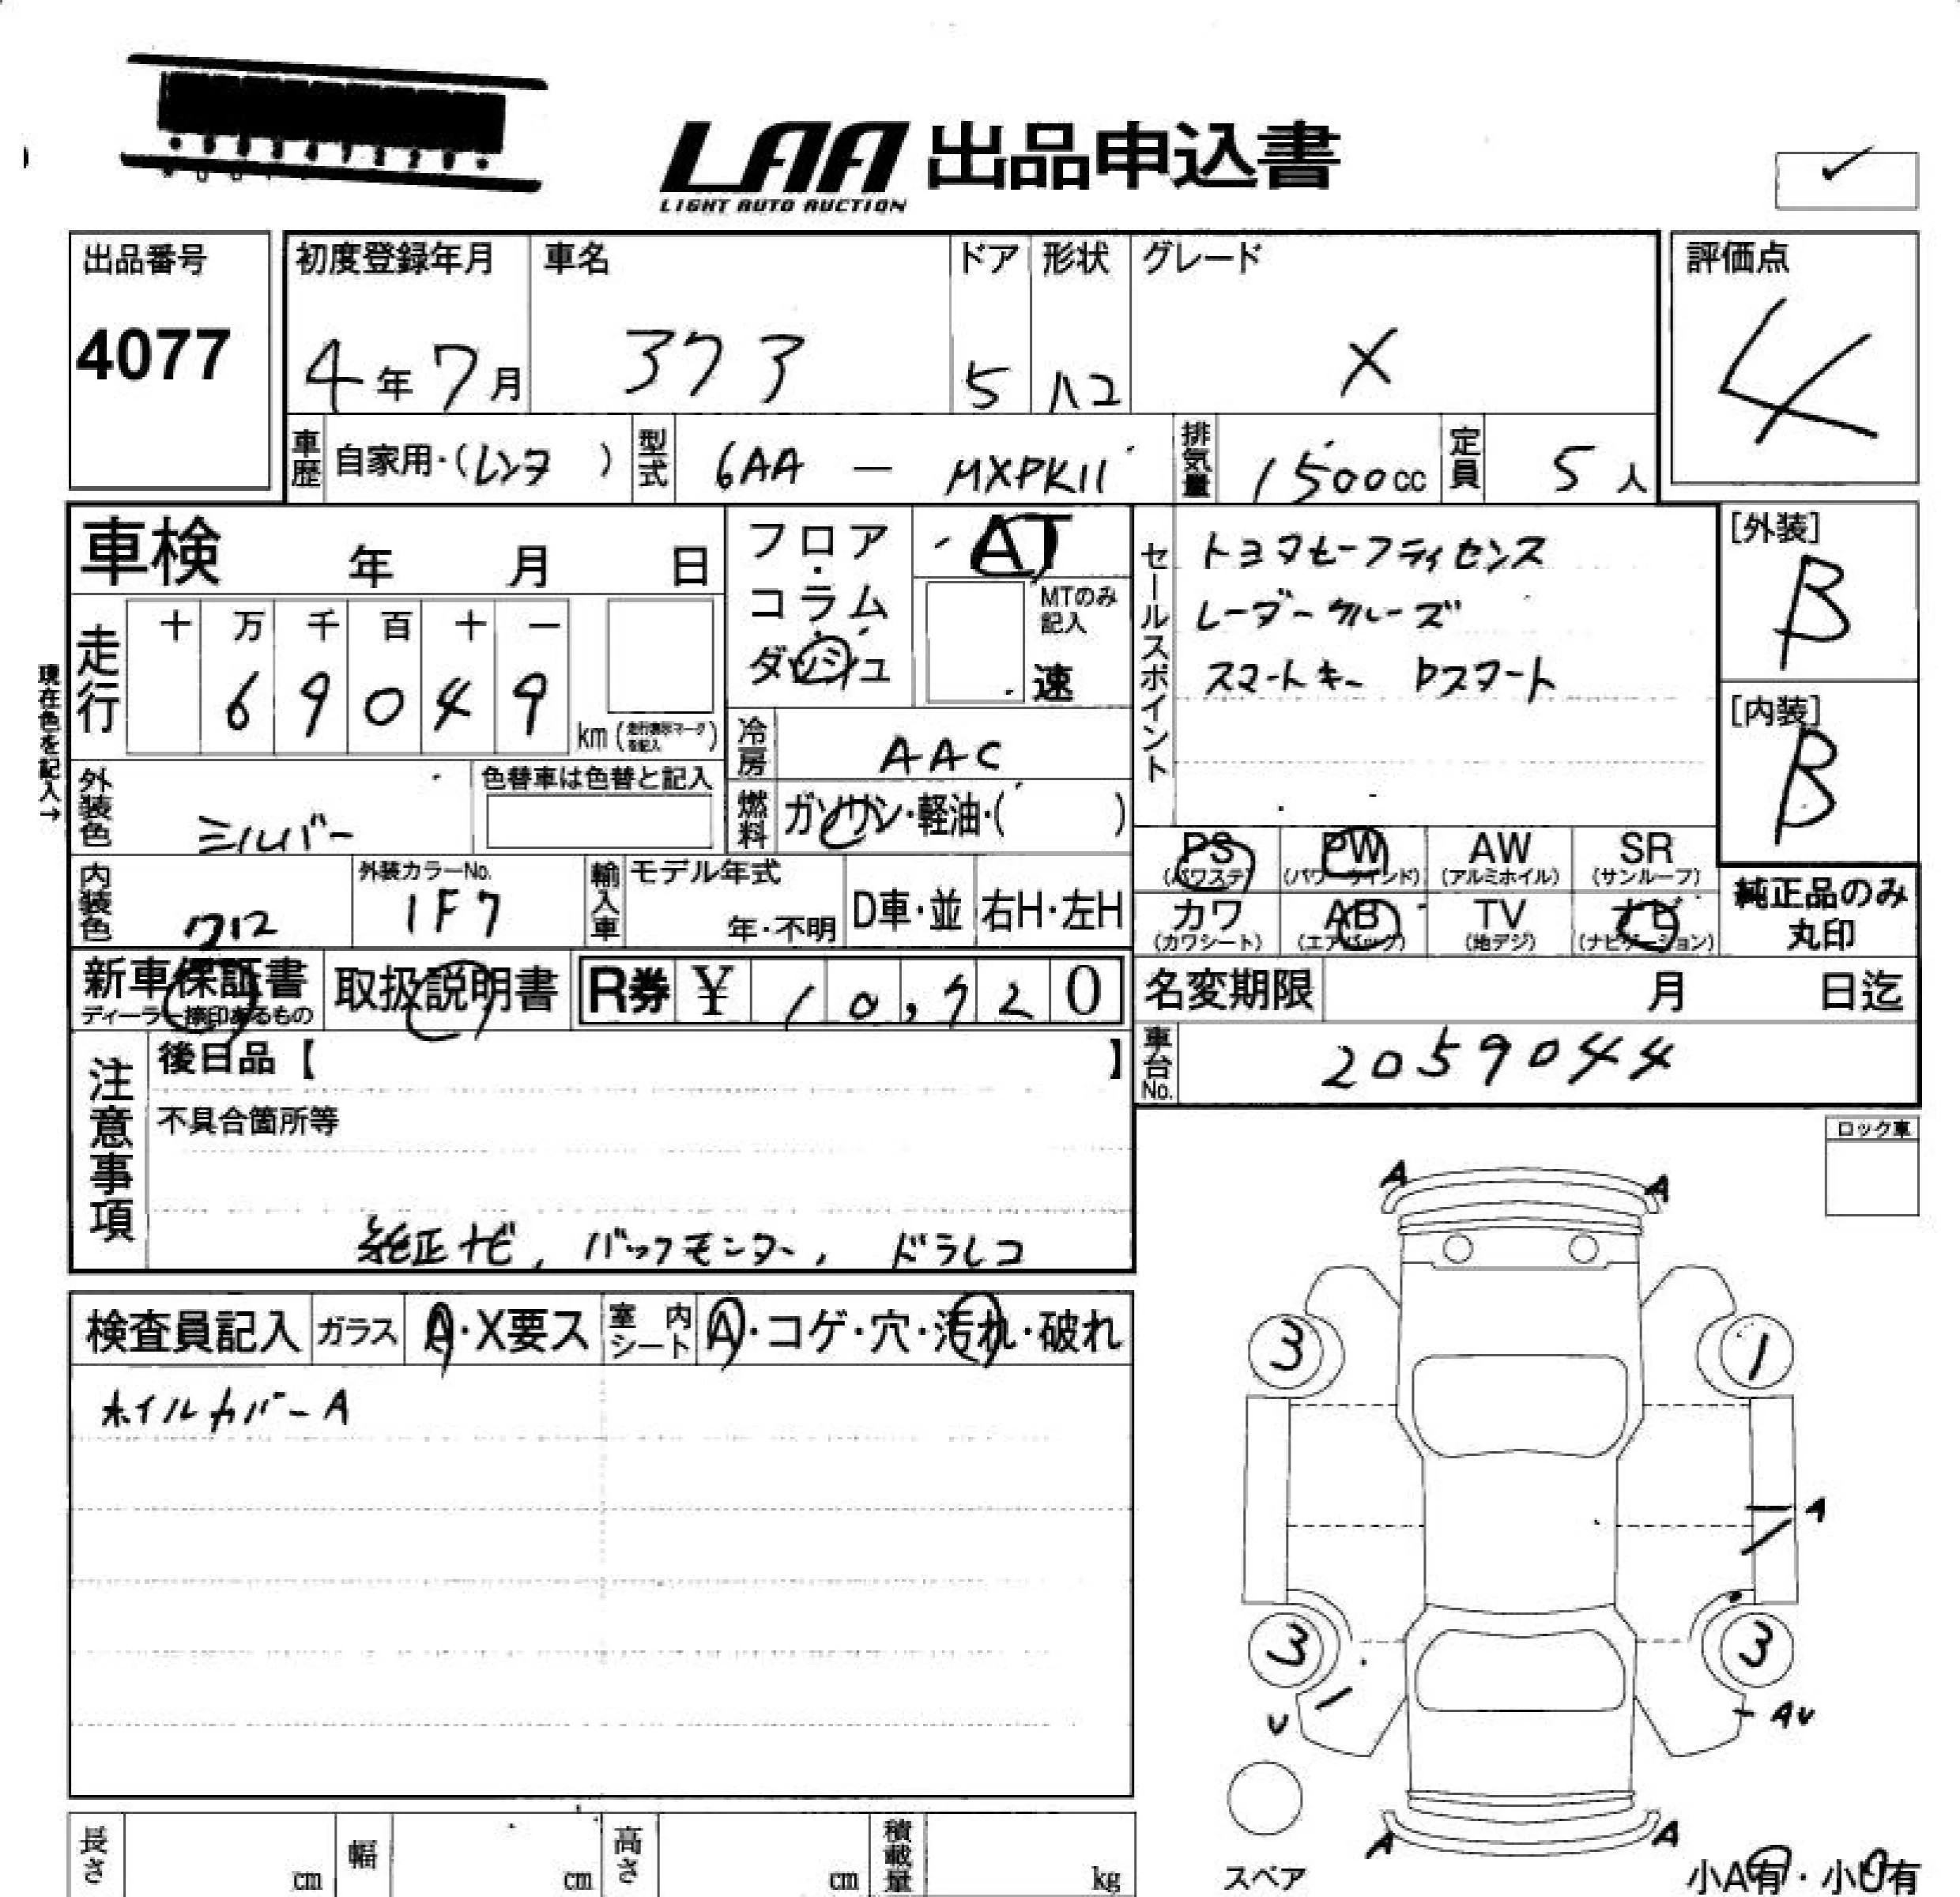 LAA 出品申込書
LIGHT AUTO AUCTION
出品番号
4077
初度登録年月
4年7月
車名
アクア
ドア
5
形状
ハコ
グレード
X
評価点
4
車歴
自家用・(レンタ)
型式
6AA － MXPK11
排気量
1500cc
定員
5人
車検 年 月 日
フロア・コラム・ダッシュ
AT
MTのみ記入
速
セールスポイント
トヨタセーフティセンス
レーダークルーズ
スマートキー Pスタート
[外装]
B
[内装]
B
現在色を記入→
走行
十 万 千 百 十 一
6 9 0 4 9
km (走行表示マークを記入)
冷房
AAC
燃料
ガソリン・軽油・( )
外装色
シルバー
色替車は色替と記入
PS (パワステ)
PW (パワーウインド)
AW (アルミホイル)
SR (サンルーフ)
カワ (カワシート)
AB (エアバッグ)
TV (地デジ)
ナビ (ナビゲーション)
純正品のみ丸印
内装色
クロ
外装カラーNo.
1F7
輸入車
モデル年式
年・不明
D車・並
右H・左H
新車保証書
ディーラー捺印あるもの
取扱説明書
R券 ¥ 10,720
名変期限 月 日迄
車台No.
2059044
注意事項
後日品【 】
不具合箇所等
純正ナビ, バックモニター, ドラレコ
ロック車
検査員記入
ガラス
A・X要ス
室内シート
A・コゲ・穴・汚れ・破れ
ホイルカバーA
A A
3 1
A
3 3
U AU
A A
スペア
小A有・小U有
長さ cm
幅 cm
高さ cm
積載量 kg